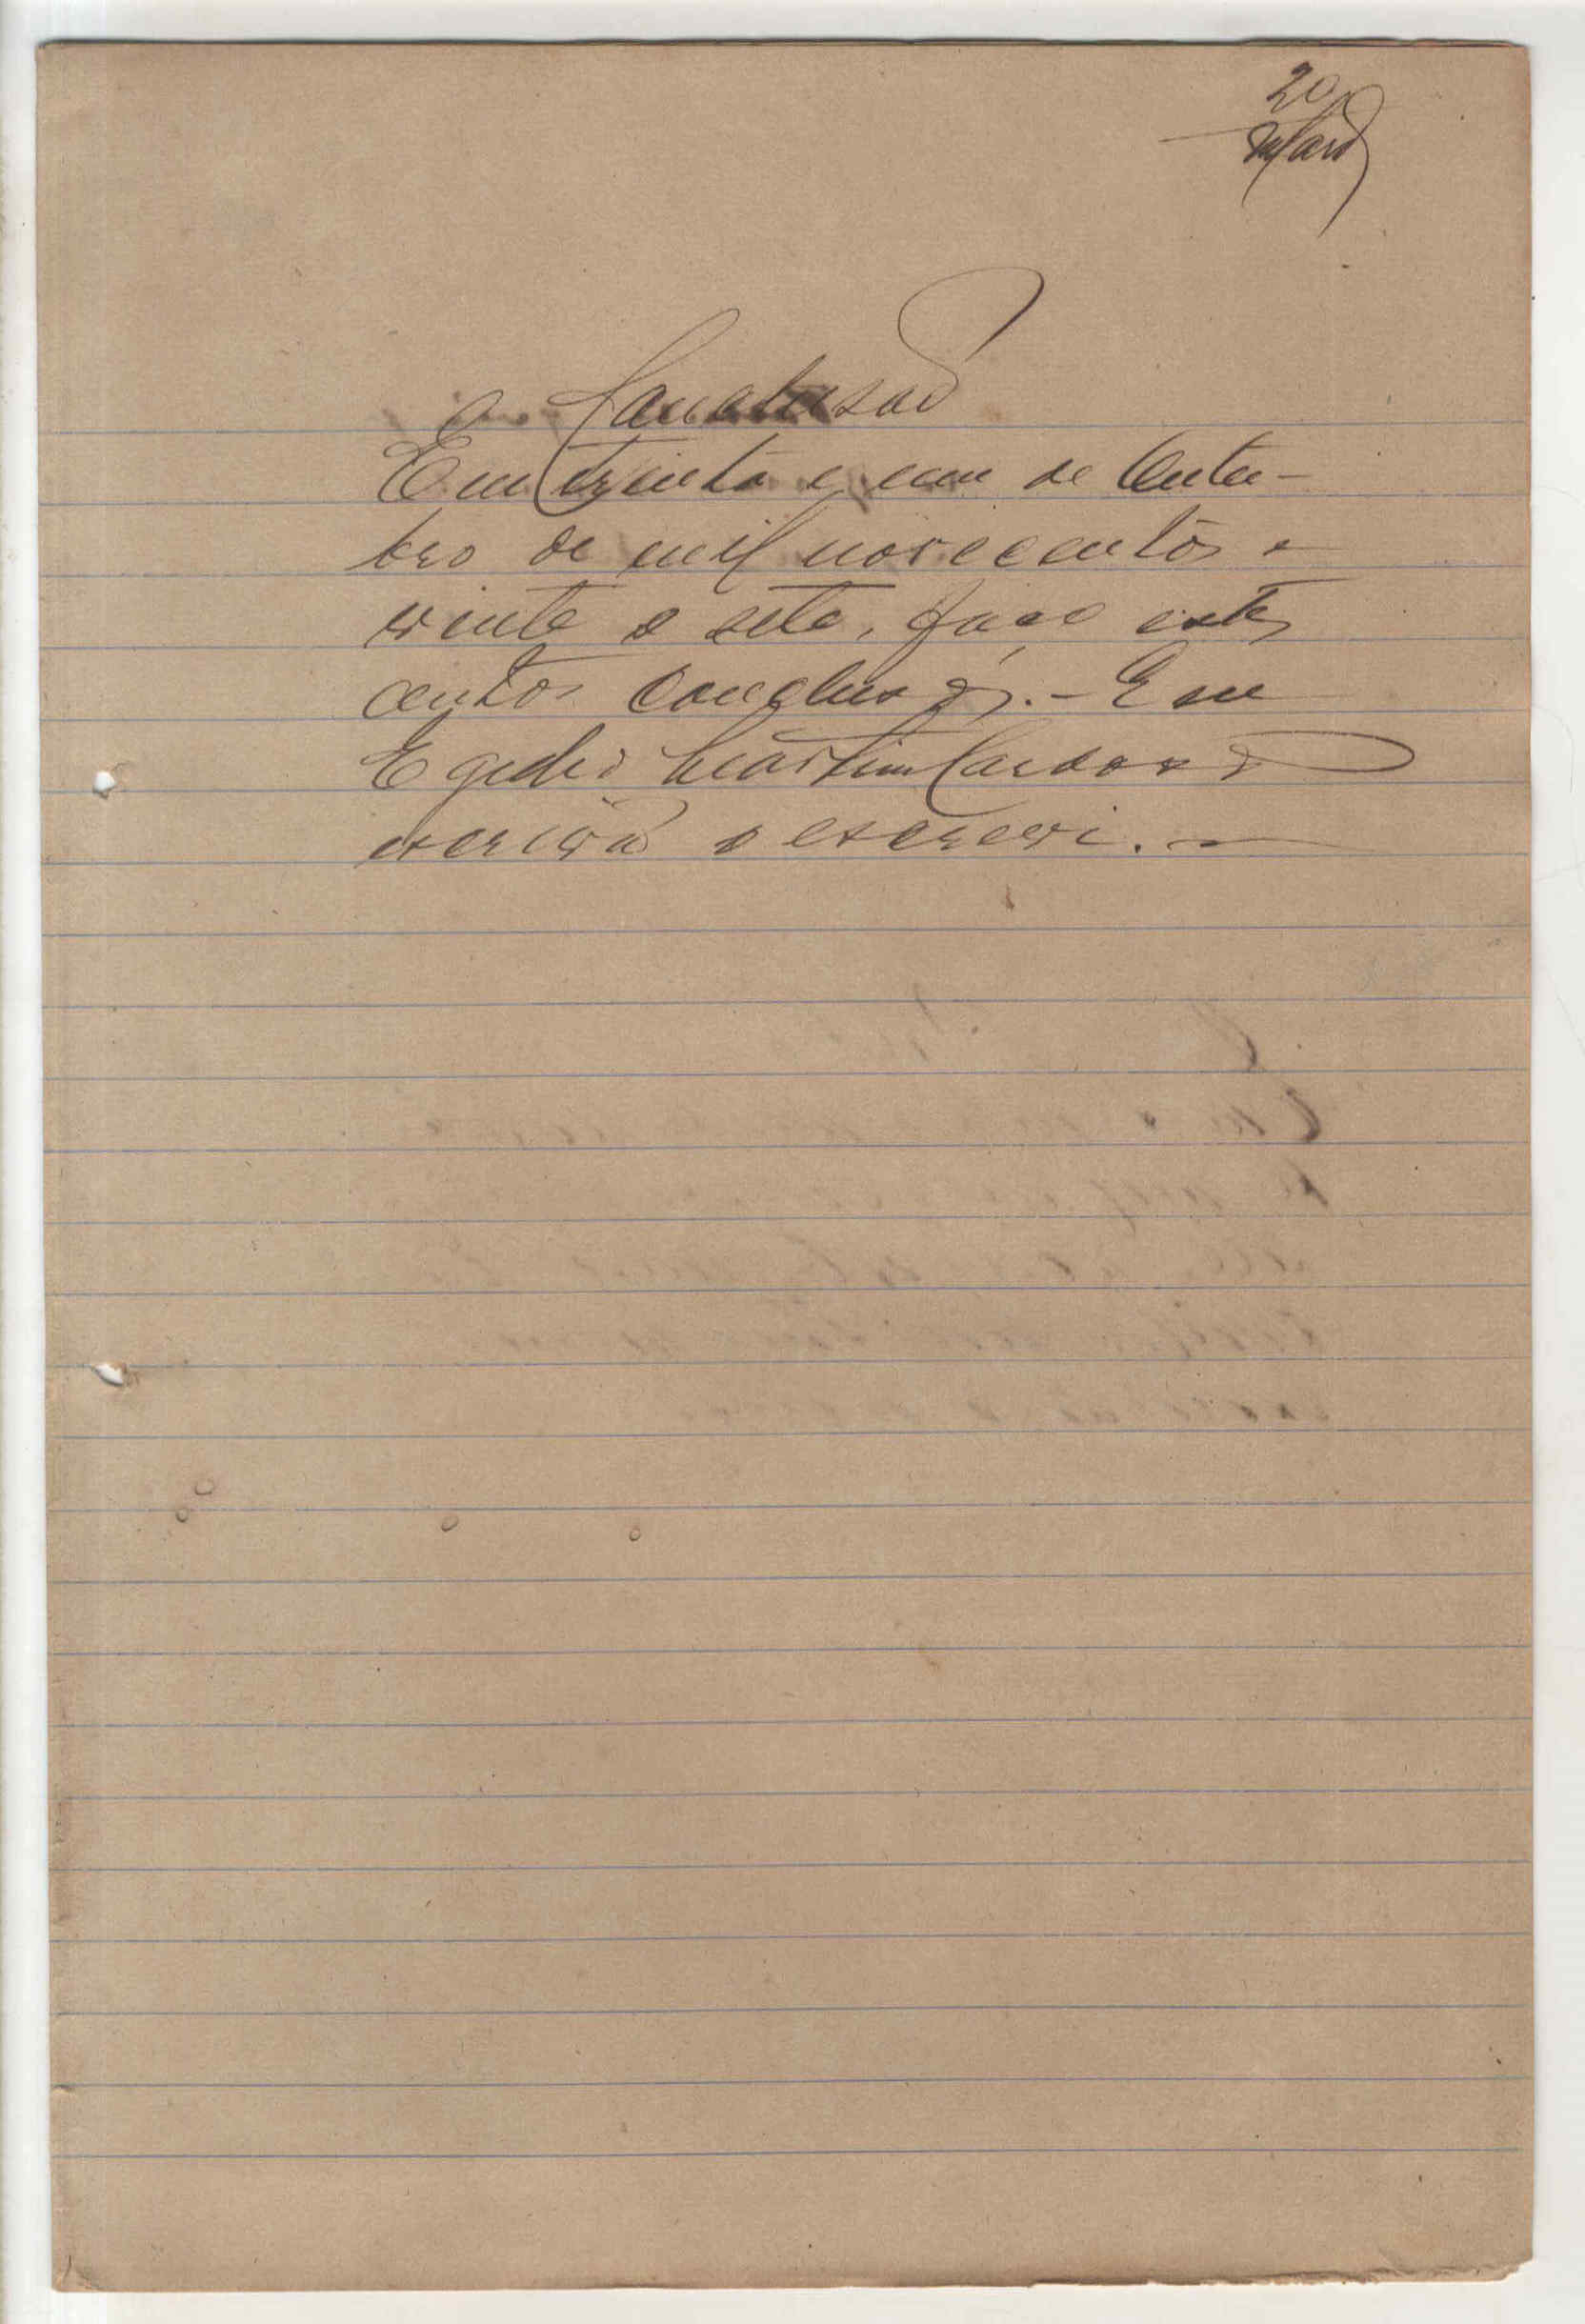 20
Conclusão
Em trinta e um de Outu-
bro de mil novecentos e
vinte e sete, faço estes
autos conclusos. - Eu
Egedio Martim Cardoso
escrivão o escrevi. -